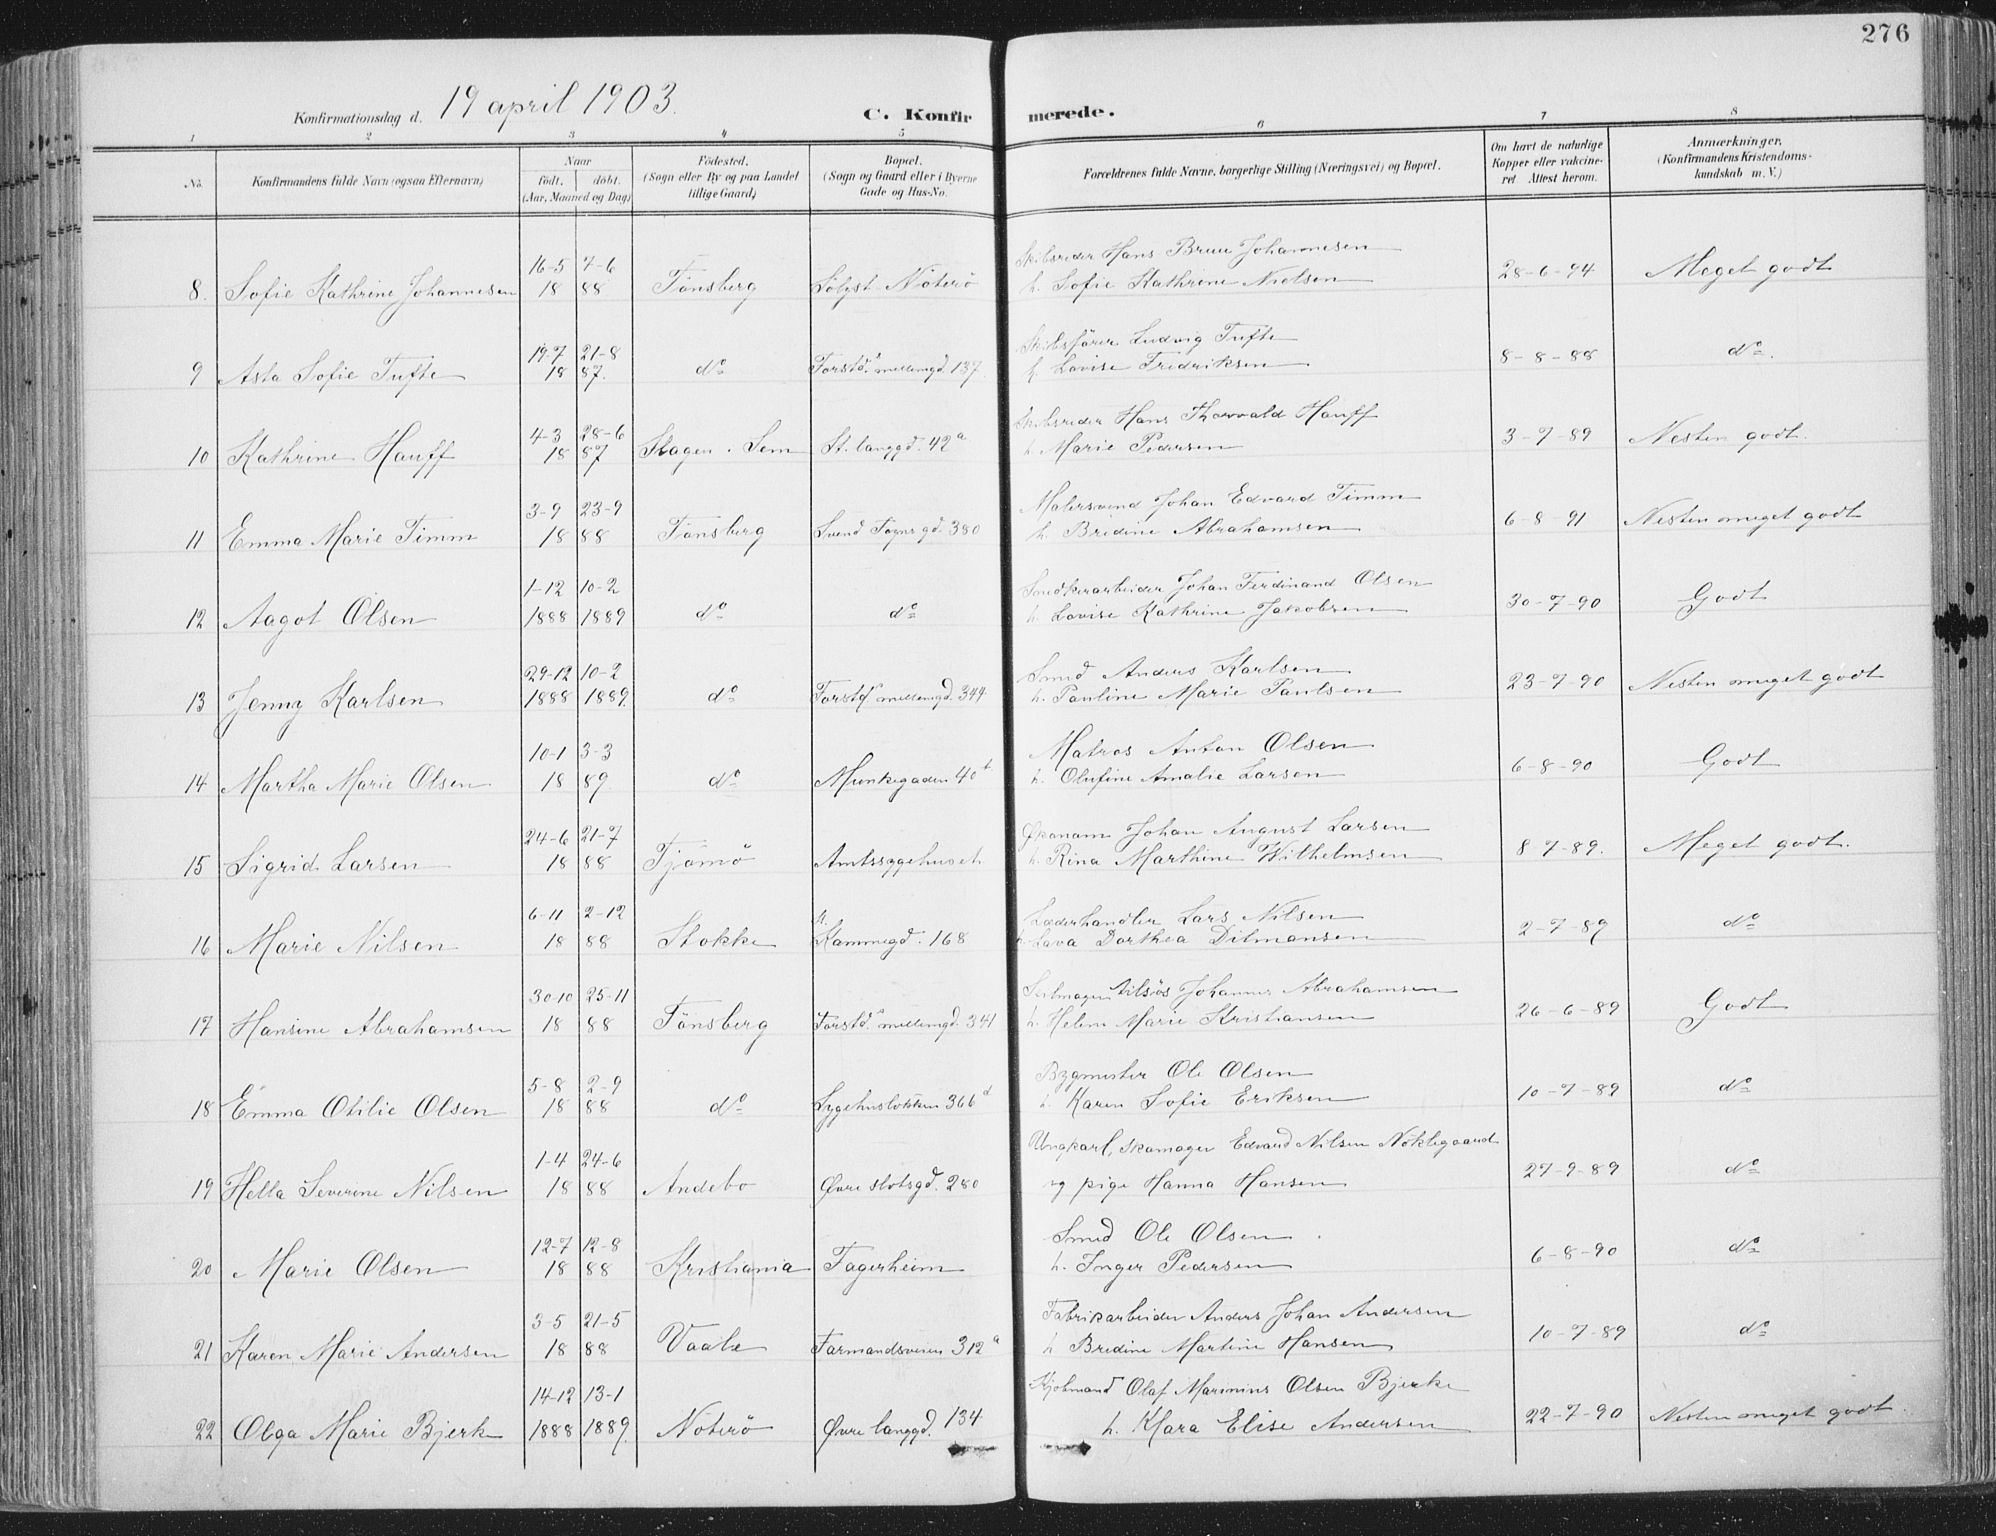 276
Konfirmationsdag d. 19 april 1903.
C. Konfirmerede.
1 2 3 4 5 6 7 8
No. Konfirmandens fulde Navn (ogsaa Efternavn) Naar født. døbt. (Aar, Maaned og Dag) Fødested. (Sogn eller By og paa Landet tillige Gaard) Bopæl. (Sogn og Gaard eller i Byerne Gade og Hus-No. Forældrenes fulde Navne, borgerlige Stilling (Næringsvei) og Bopæl. Om havt de naturlige Kopper eller vakcineret Attest herom. Anmærkninger. (Konfirmandens Kristendomskundskab m. V.)
16-5 7-6 Skibsreder Hans Bruu Johannesen
8. Sofie Kathrine Johannesen 18 88 Tönsberg Solyst Nöterö h. Sofie Kathrine Nielsen 28-6-94 Meget godt
19-7 21-8 Skibsförer Ludvig Tufte
9 Asta Sofie Tufte 18 87. do Forstd. mellemgd. 137. h. Lovise Fredriksen 8-8-88 do.
4-3 28-6 Skibsreder Hans Thorvald Hauff
10 Kathrine Hauff 18 87 Slagen. Sem St. langgd. 42a h. Marie Pedersen 3-7-89 Nesten godt.
3-9 23-9 Malersvend Johan Edvard Timm
11 Emma Marie Timm 18 88 Tönsberg Svend Foynsgd. 380 h. Bredine Abrahamsen 6-8-91 Nesten meget godt
1-12 10-2 Snedkerarbeider Johan Ferdinand Olsen
12 Aagot Olsen 1888 1889 do do h. Lovise Kathrine Jakobsen 30-7-90 Godt
29-12 10-2 Smed Anders Karlsen
13 Jenny Karlsen 1888 1889. do Forstd. mellemgd. 344 h. Pauline Marie Paulsen 23-7-90 Nesten meget godt
10-1 3-3 Matros Anton Olsen
14 Martha Marie Olsen 18 89 do Munkegaden 40b h. Olufine Amalie Larsen 6-8-90 Godt
24-6 21-7 Økonom Johan August Larsen
15 Sigrid Larsen 18 88 Tjömö Amtssygehuset h. Rina Marthine Wilhelmsen 8-7-89. Meget godt.
6-11 2-12 Læderhandler Lars Nilsen
16 Marie Nilsen 18 88 Stokke Kammegd. 168 h. Lava Dorthea Ditmansen 2-7-89 do
30-10 25-11 Seilmager Johannes Abrahamsen
17 Hansine Abrahamsen 18 88 Tönsberg Forstd. mellemgd. 341 h. Helene Marie Kristiansen 26-6-89 Godt
5-8 2-9 Bygmester Ole Olsen
18 Emma Otilie Olsen 18 88 do Sygehusløkken 366d h. Karen Sofie Eriksen 10-7-89 do
1-4 24-6 Ungkarl, skomager Edvard Nilsen Nöklegaard
19 Hella Severine Nilsen 18 88 Andebo Øvre slotsgd. 280 og pige Hanna Hansen 27-9-89 do
12-7 12-8 Smed Ole Olsen
20 Marie Olsen 18 88 Kristiania Fagerheim h. Inger Pedersen 6-8-90 do
3-5 21-5 Fabrikarbeider Anders Johan Andersen
21 Karen Marie Andersen 18 88 Vaale Farmandsveien 312a h Bredine Martine Hansen 10-7-89 do
14-12 13-1 Kjøbmand Olaf Marinius Olsen Bjerke
22 Olga Marie Bjerk 1888 1889. Nöterö Øvre langgd. 134 h. Klara Elise Andersen 22-7-90 Nesten meget godt.